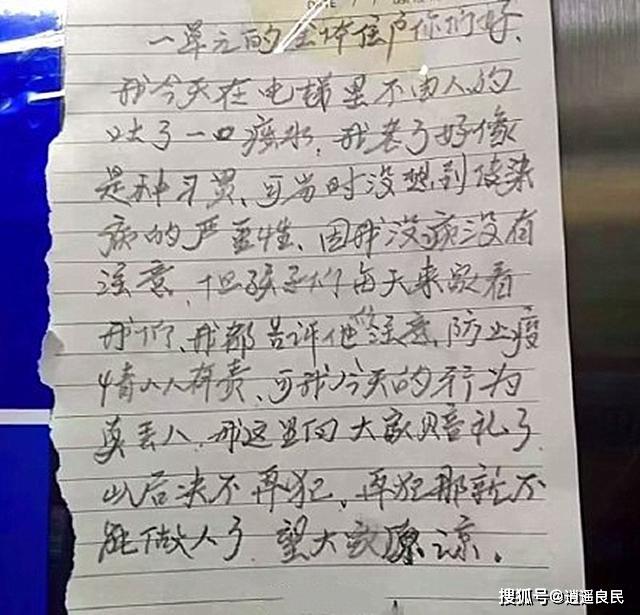 DATE
一单元的全体住户你们好、
我今天在电梯里不由人的
吐了一口痰水，我老了好像
是种习惯、可当时没想到传染
病的严重性、因我没病没有
注意，但孩子们每天来家看
我们、我都告诉他们注意，防止疫
情人人有责、可我今天的行为
真丢人、我这里向大家赔礼了
以后决不再犯，再犯那就不
能做人了 望大家原谅。
搜狐号@逍遥良民